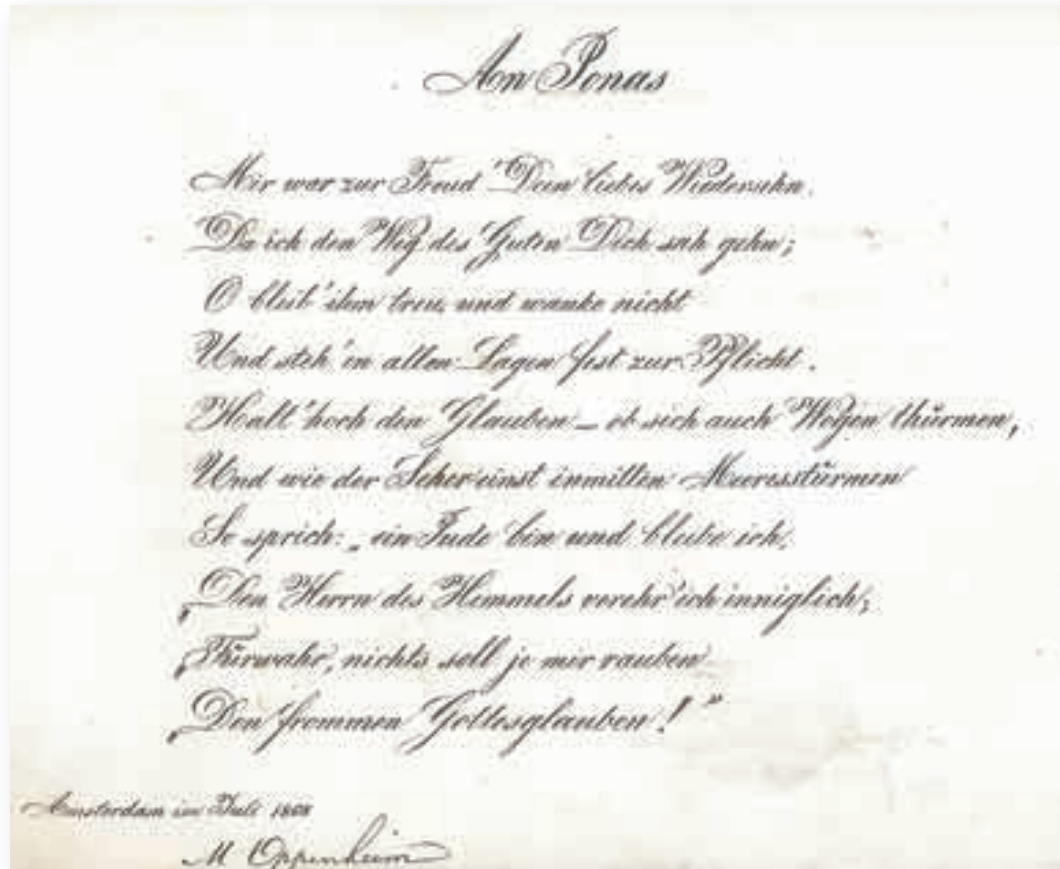 An Jonas
Mir war zur Freud' Dein liebes Wiedersehn.
Da ich den Weg des Guten Dich sah gehn;
O bleib' ihm treu, und wanke nicht
Und steh' in allen Lagen fest zur Pflicht.
Halt' hoch den Glauben – ob sich auch Wogen thürmen,
Und wie der Seher einst inmitten Meeresstürmen
So sprich: „ein Jude bin und bleibe ich.
„Den Herrn des Himmels verehr' ich inniglich;
„Fürwahr, nichts soll je mir rauben
„Den frommen Gottesglauben!"
Amsterdam im Juli
M Oppenheim